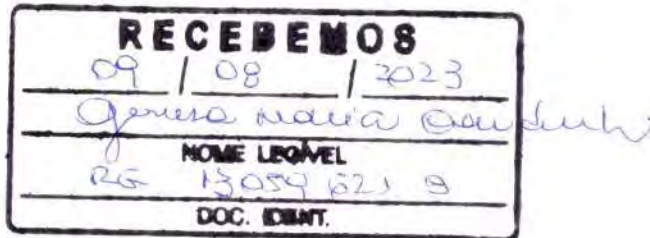 RECEBEMOS
09 / 08 / 2023
Maria
NOME LEGÍVEL
RG 13 054 621 9
DOC. IDENT.